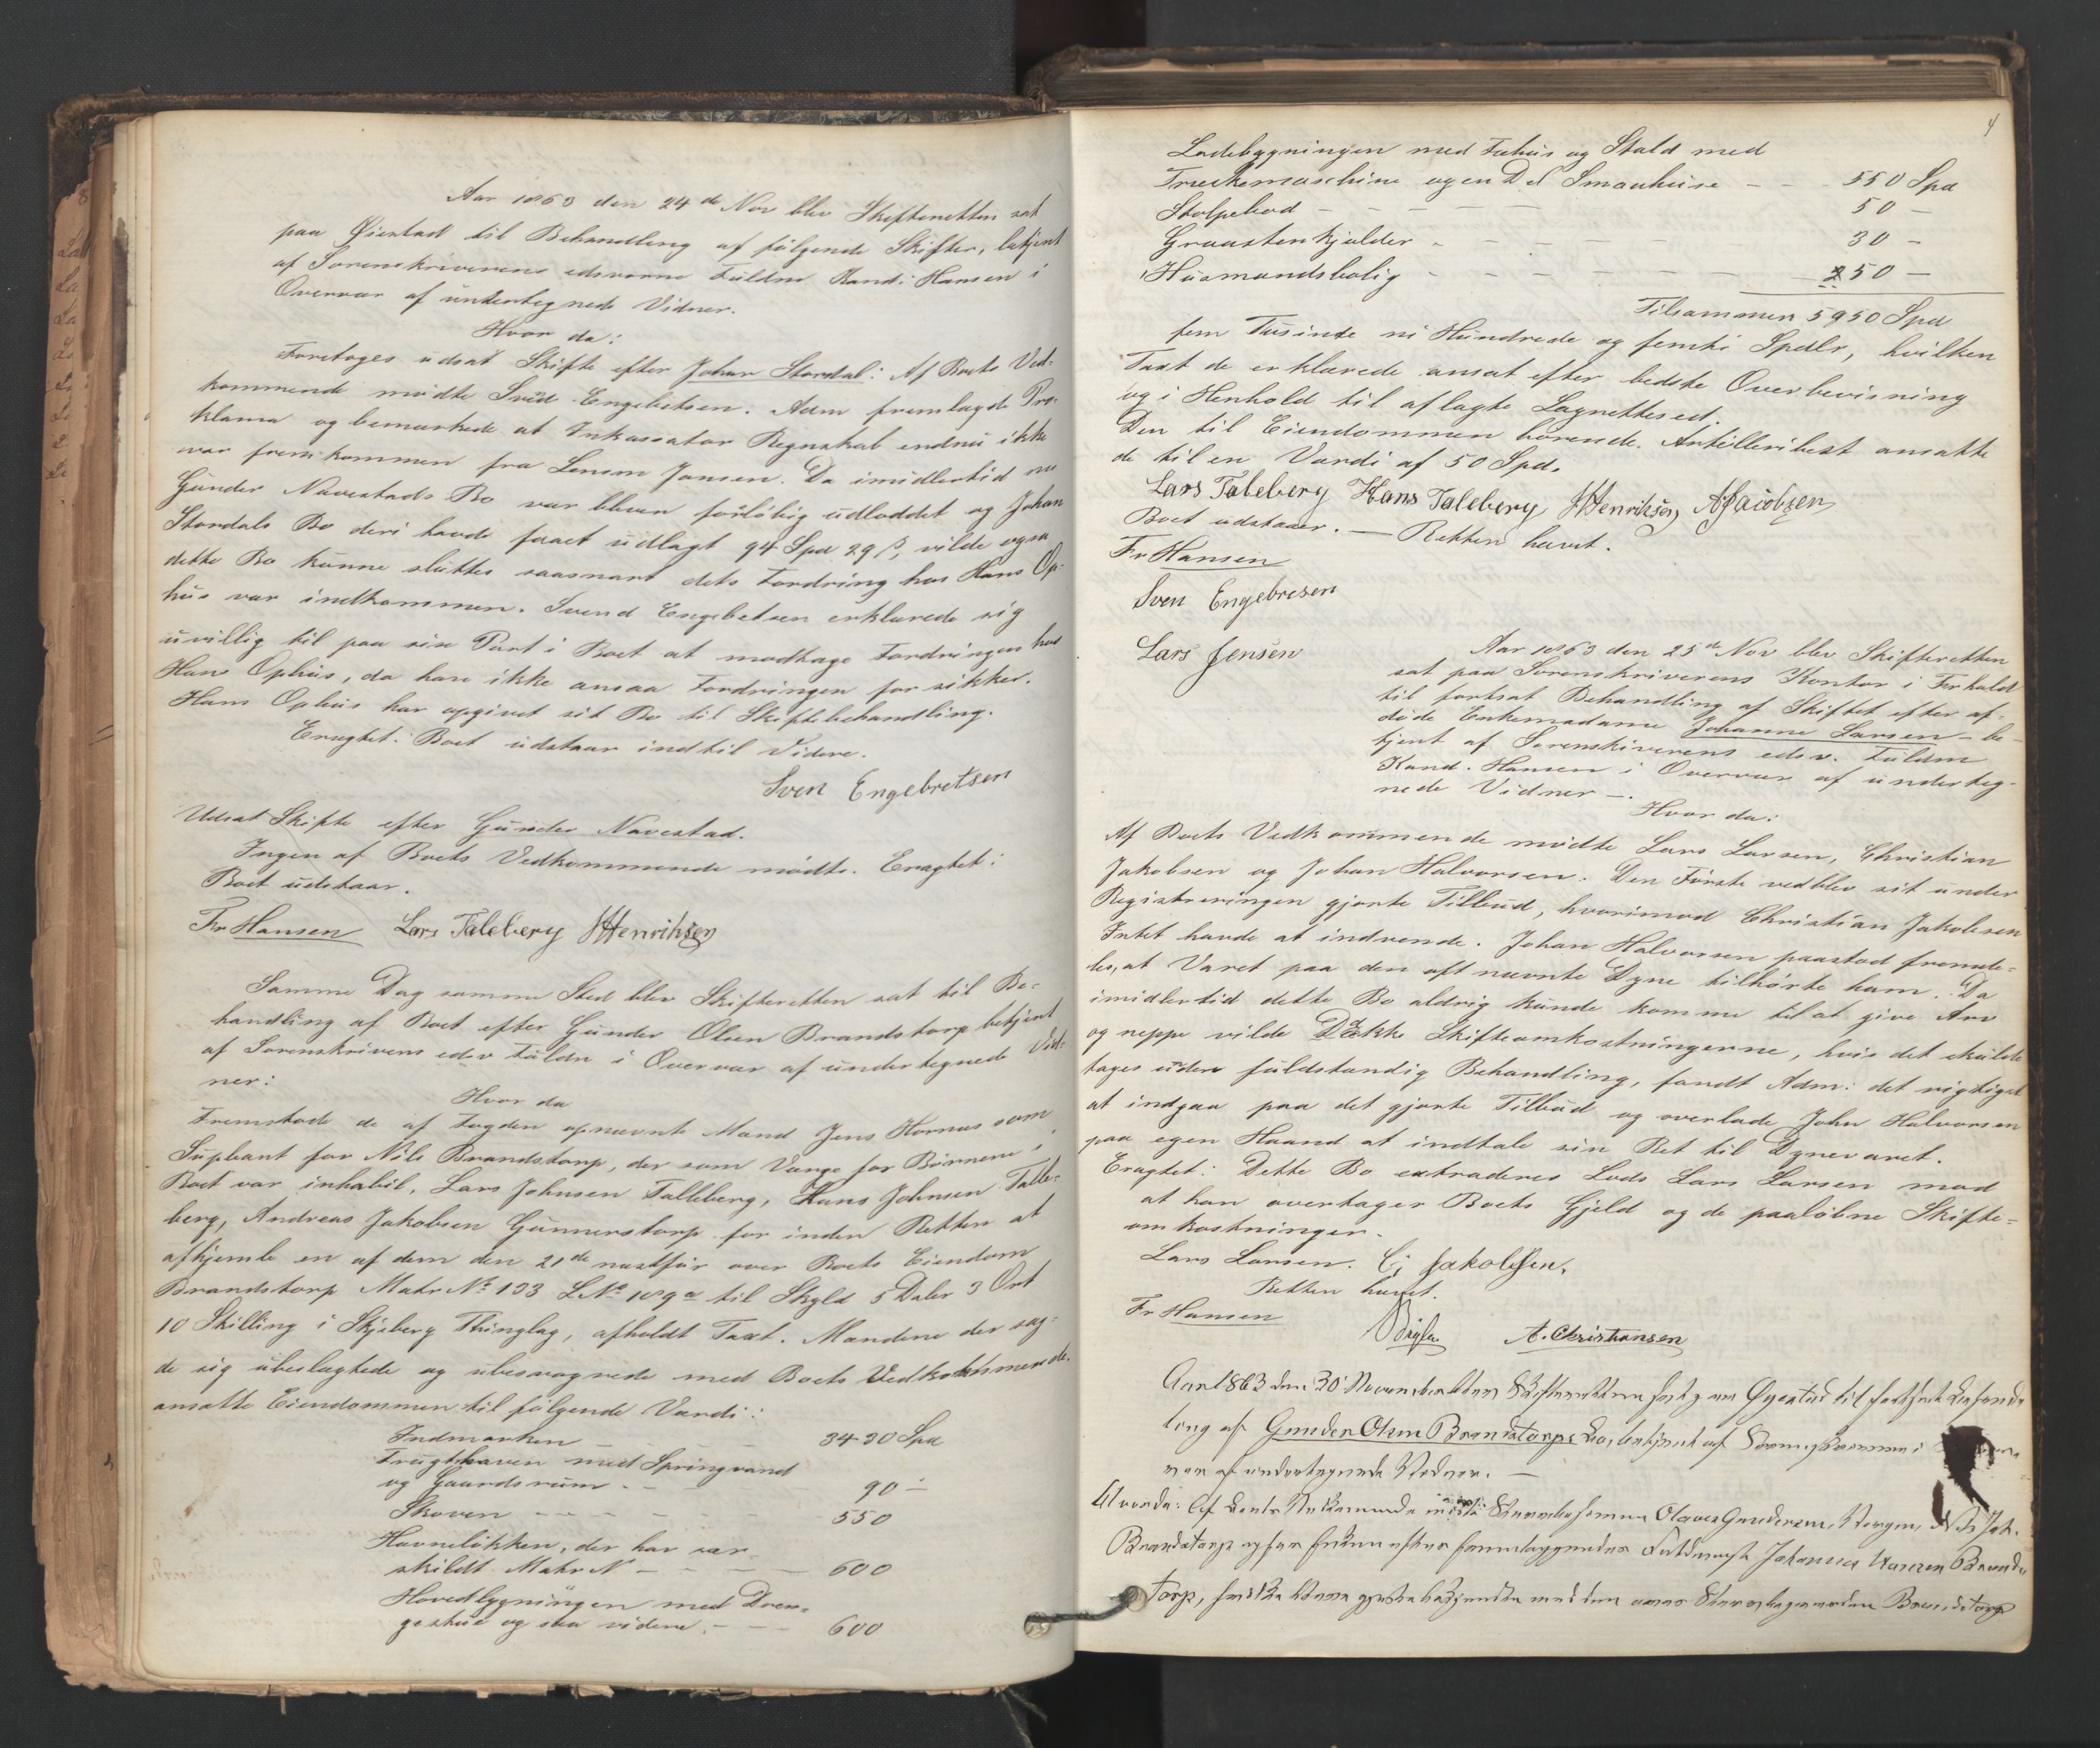 Aar 1863 den 24de Nov blev Skifteretten sat
paa Øiestad til Behandling af følgende Skifter, betjent
af Sorenskriverens edsvorne Fuldm Kand: Hansen i
Overvær af undertegnede Vidner.
Hvor da:
Foretoges udsat Skifte efter Johan Stordal: Af Boets Ved-
kommende mødte Svend Engebretsen. Adm fremlagde Pro-
klama og bemærkede at Inkassator Regnskab endnu ikke
var fremkommen fra Lensm Jansen. Da imidlertid nu
Gunder Navestads Bo var bleven foreløbig udloddet og Johan
Stordals Bo deri havde faaet udlagt 94 Spd 29 β, vilde ogsaa
dette Bo kunne sluttes saasnart dets Fordring hos Hans Op-
hus var indkommen. Svend Engebretsen erklærede sig
uvillig til paa sin Part i Boet at modtage Fordringen hos
Hans Ophus, da han ikke ansaa Fordringen for sikker.
Hans Ophus har opgivet sit Bo til Skiftebehandling.
Eragtet: Boet udstaar indtil Videre.
Sven Engebretsen
Udsat Skifte efter Gunder Navestad.
Ingen af Boets Vedkommende mødte. Eragtet:
Boet udstaar.
Fr Hansen Lars Taleberg HHenriksen
Samme Dag samme Sted blev Skifteretten sat til Be-
handling af Boet efter Gunder Olsen Brandstorp betjent
af Sorenskrivens edsv Fuldm i Overvær af undertegnede Vid-
ner:
Hvor da
Fremstode de af Fogden opnævnte Mænd Jens Hornæs som
Supleant for Nils Brandstorp, der som Værge for Børnene i
Boet var inhabil, Lars Johnsen Talleberg, Hans Johnsen Talle-
berg, Andreas Jakobsen Gunnerstorp for inden Retten at
afhjemle en af dem den 21de næstfør over Boets Eiendom
Brandstorp Matr No 133 LNo 189a til Skyld 5 Daler 3 Ort
10 Skilling i Skjeberg Thinglag, afholdt Taxt. Mændene der sag-
de sig ubeslægtede og ubesvogrede med Boets Vedkommende.
ansatte Eiendommen til følgende Værdi:
Indmarken — 3430 Spd
Frugthaven med Springvand
og Gaardsrum — 90 —
Skoven — 550
Havneløkken, der har sær-
skildt Matr N — 600
Hovedbygningen med Dren-
gestue og saa videre — 600
4
Ladebygningen med Fæhus og Stald med
Trøskemaschine og en Del Smaahuse — 550 Spd
Stolpebod — 50 —
Graastenkjælder — 30 —
1 Husmandsbolig — 50 —
Tilsammen 5950 Spd
fem Tusinde ni Hundrede og femti Spdlr, hvilken
Taxt de erklærede ansat efter bedste Overbevisning
og i Henhold til aflagte Lagrettesed.
Den til Eiendommen hørende Artillerihest ansatte
de til en Værdi af 50 Spd.
Lars Taleberg Hans Taleberg HHenriksen AJacobsen
Boet udstaaer. — Retten hævet.
Fr Hansen
Sven Engebresen
Lars Jensen
Aar 1863 den 25de Nov blev Skifteretten
sat paa Sorenskriverens Kontor i Frhald
til fortsat Behandling af Skiftet efter af-
døde Enkemadame Johanne Larsen – be-
tjent af Sorenskiverens edsv. Fuldm
Kand. Hansen i Overvær af underteg-
nede Vidner —.
Hvor da:
Af Boets Vedkommende mødte Lars Larsen, Christian
Jakobsen og Johan Halvorsen. Den Første vedblev sit under
Registreringen gjorte Tilbud, hvorimod Christian Jakobsen
Intet havde at indvende. Johan Halvorsen paastod fremde-
les, at Varet paa den oft nævnte Dyne tilhørte ham. Da
imidlertid dette Bo aldrig kunde komme til at give Arv
og neppe vilde Dække Skifteomkostningerne, hvis det skulde
tages under fuldstændig Behandling, fandt Adm: det rigtigst
at indgaa paa det gjorte Tilbud og overlade John Halvorsen
paa egen Haand at indtale sin Ret til Dynevaret.
Eragtet: Dette Bo extraderes Lods Lars Larsen mod
at han overtager Boets Gjeld og de paaløbne Skifte-
omkostninger.
Lars Larsen. C; Jakobsen,
Retten hævet.
Fr Hansen
A. Christiansen
Aar 1863 den 30 November blev Skifteretten sat paa Øyestad til fortsat Behand
ling af Gunder Olsen Brandstorps Bo, betjent af Sorenskriveren i
vær af undertegnede Vidner. —
Hvorda: Af Boets Vedkommende mødte Olaves Gundersen, Værgen, Nils Joh.
Brandstorp og for Enken Johannes Hansen Brands
torp,